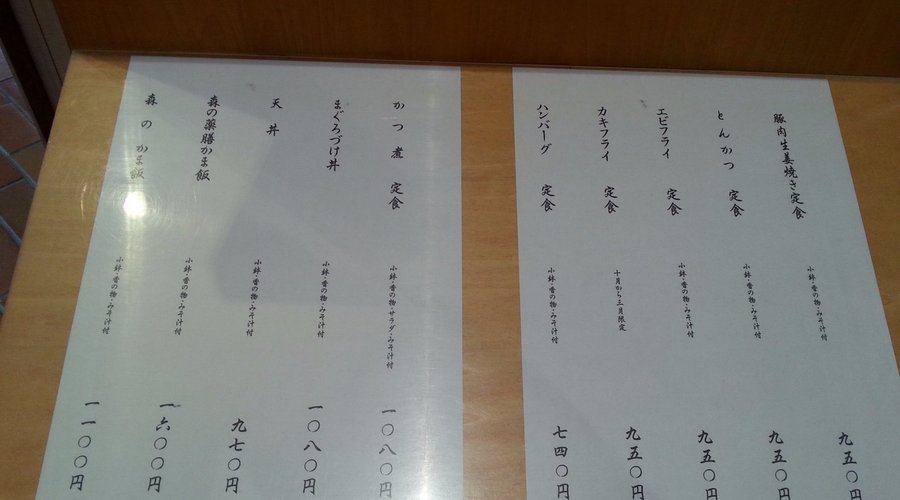 豚肉生姜焼き定食 小鉢・香の物・みそ汁付 九五〇円
とんかつ 定食 小鉢・香の物・みそ汁付 九五〇円
エビフライ 定食 小鉢・香の物・みそ汁付 九五〇円
カキフライ 定食 十月から三月限定 九五〇円
ハンバーグ 定食 小鉢・香の物・みそ汁付 七四〇円
かつ煮 定食 小鉢・香の物・サラダ・みそ汁付 一〇八〇円
まぐろづけ丼 小鉢・香の物・みそ汁付 一〇八〇円
天丼 小鉢・香の物・みそ汁付 九七〇円
森の薬膳かま飯 小鉢・香の物・みそ汁付 一六〇〇円
森のかま飯 小鉢・香の物・みそ汁付 一一〇〇円